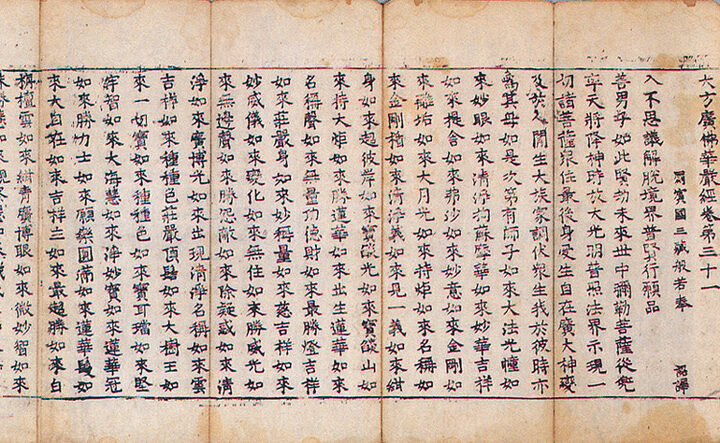 大方廣佛華嚴經卷第三十一
罽賓國三藏般若奉　詔譯
入不思議解脫境界普賢行願品
善男子如此賢劫未來世中彌勒菩薩從兜
率天將降神時放大光明普照法界示現一
切諸菩薩眾住最後身受生自在廣大神變
及於人間生大族家調伏眾生我於彼時亦
為其母如是次第有師子如來大法光幢如
來妙眼如來清淨拘蘇摩華如來妙華吉祥
如來提舍如來弗沙如來妙意如來金剛如
來離垢如來大月光如來持炬如來名稱如
來金剛楯如來清淨義如來見一義如來紺
身如來超彼岸如來寶焰光如來寶焰山如
來持大炬如來勝蓮華如來出生蓮華如來
名稱聲如來無量功德財如來最勝燈吉祥
如來莊嚴身如來妙稱量如來慈吉祥如來
妙威儀如來變化如來無住如來勝威光如
來無邊聲如來勝怨敵如來除疑惑如來清
淨如來寶博光如來出現清淨名稱如來雲
吉祥如來種種色莊嚴頂髻如來大樹王如
來一切寶如來種種色如來寶耳璫如來堅
牢智如來大海慧如來淨妙寶如來蓮華冠
如來勝力士如來願樂圓滿如來蓮華鬘如
來大自在如來吉祥主如來最超勝如來白
栴檀雲如來紺青廣博眼如來微妙智如來